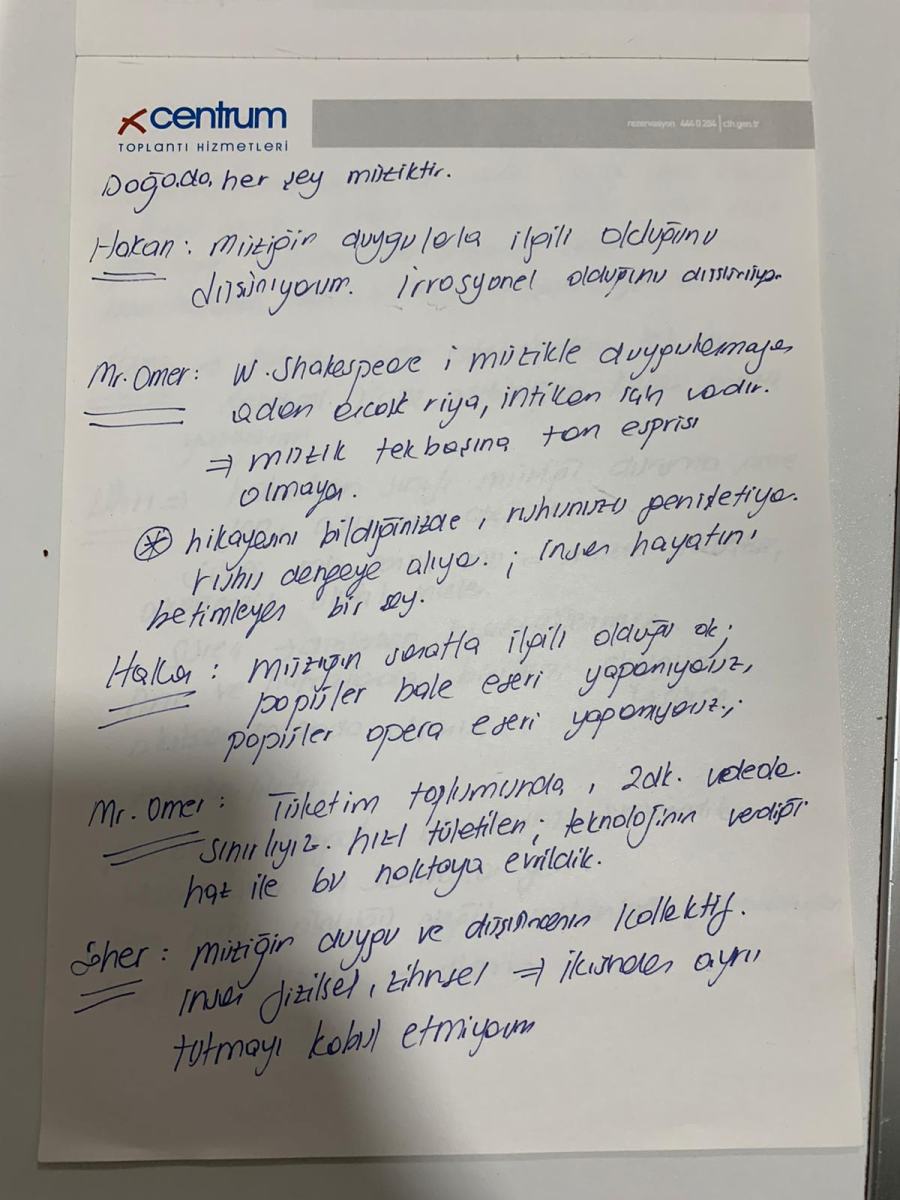 centrum
TOPLANTI HİZMETLERİ
rezervasyon 444 0 284 | cth.gen.tr
Doğada, her şey müziktir.
Hakan: Müziğin duygularla ilgili olduğunu
düşünüyorum. İrrasyonel olduğunu düşünüyor.
Mr. Omer: W. Shakespeare i müzikle duygulanmayan
adam ancak riya, intikam için vardır.
⇒ müzik tek başına tam esprisi
olmayan.
* hikayesini bildiğinizde, ruhunuzu genişletiyor.
ruhu dengeye alıyor. ; insan hayatını
betimleyen bir şey.
Hakan: Müziğin sanatla ilgili olduğu ok;
popüler bale eseri yapamıyoruz,
popüler opera eseri yapamıyoruz.;
Mr. Omer: Tüketim toplumunda, 2dk.
sınırlıyız. hızlı tüketilen; teknolojinin verdiği
haz ile bu noktaya evrildik.
: Müziğin duygu ve düşüncenin kollektif.
insan fiziksel, zihinsel ⇒ ikisinden ayrı
tutmayı kabul etmiyorum